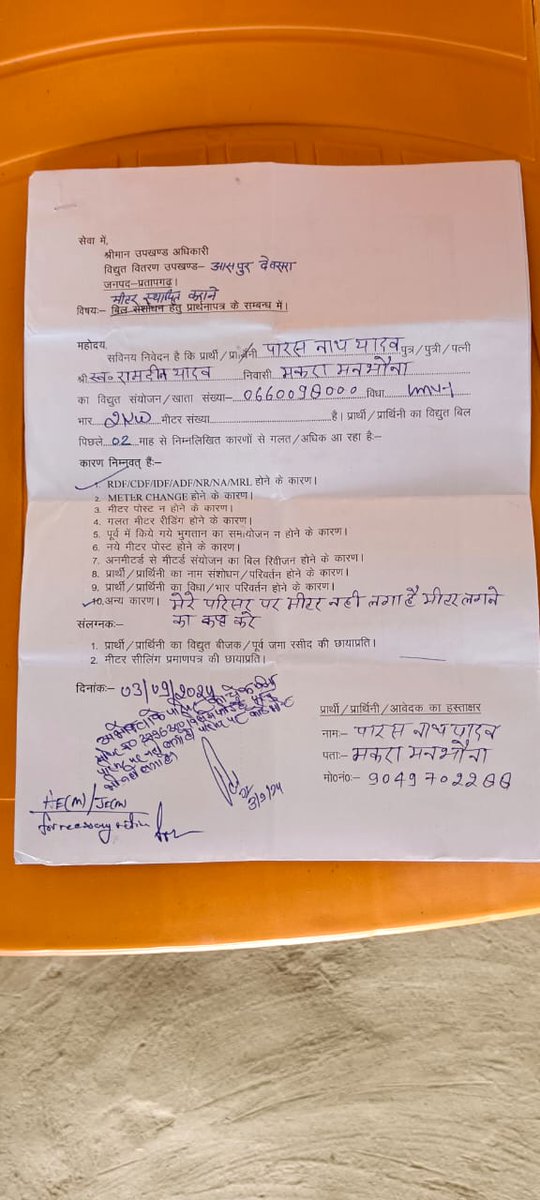 सेवा में,
श्रीमान उपखण्ड अधिकारी
विद्युत वितरण उपखण्ड– आसपुर देवसरा
जनपद–प्रतापगढ़।
मीटर स्थापित कराने
विषयः– बिल संशोधन हेतु प्रार्थनापत्र के सम्बन्ध में।
महोदय,
सविनय निवेदन है कि प्रार्थी/प्रार्थिनी पारस नाथ यादव पुत्र/पुत्री/पत्नी
श्री स्व० रामदीन यादव निवासी मकरा मनभौना
का विद्युत संयोजन/खाता संख्या– विधा
भार 2KW मीटर संख्या है। प्रार्थी/प्रार्थिनी का विद्युत बिल
पिछले 02 माह से निम्नलिखित कारणों से गलत/अधिक आ रहा है:–
कारण निम्नवत् हैं:–
1. RDF/CDF/IDF/ADF/NR/NA/MRL होने के कारण।
2. METER CHANGE होने के कारण।
3. मीटर पोस्ट न होने के कारण।
4. गलत मीटर रीडिंग होने के कारण।
5. पूर्व में किये गये भुगतान का समायोजन न होने के कारण।
6. नये मीटर पोस्ट होने के कारण।
7. अनमीटर्ड से मीटर्ड संयोजन का बिल रिवीजन होने के कारण।
8. प्रार्थी/प्रार्थिनी का नाम संशोधन/परिवर्तन होने के कारण।
9. प्रार्थी/प्रार्थिनी का विधा/भार परिवर्तन होने के कारण।
10. अन्य कारण। मेरे परिसर पर मीटर नही लगा है मीटर लगाने
का कष्ट करे
संलग्नकः–
1. प्रार्थी/प्रार्थिनी का विद्युत बीजक/पूर्व जमा रसीद की छायाप्रति।
2. मीटर सीलिंग प्रमाणपत्र की छायाप्रति।
दिनांकः– 03/09/2024
प्रार्थी/प्रार्थिनी/आवेदक का हस्ताक्षर
नामः– पारस नाथ यादव
पताः– मकरा मनभौना
मो०नं०:–
3/9/24
AE(M)/JE(M)